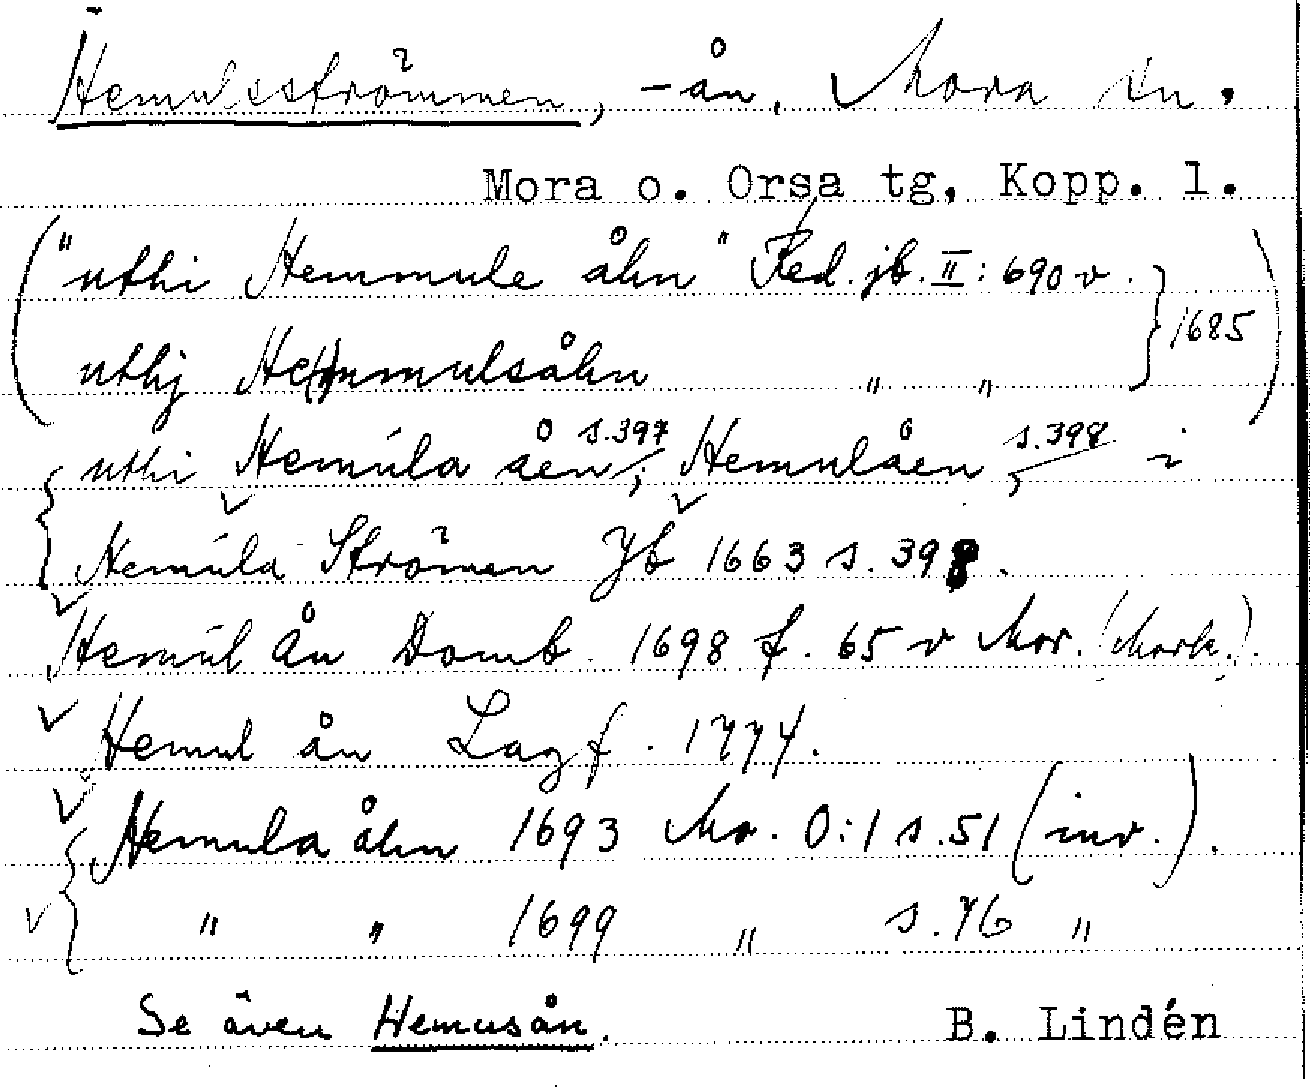 Hemulsströmmen, -ån, Mora sn.
Mora o. Orsa tg, Kopp. l.
("uthi Hemmule åhn" Red. jb. II: 690 v. } 1685)
uthj Hemmulsåhn " "
{ uthi Hemúla åen s.397; Hemulåen s.398, i
Hemúla Strömen Jb 1663 s. 398.
Hemúl ån Domb. 1698 f. 65 v Mor. (Mork.).
Hemul ån Lagf. 1774.
{ Hemula åhn 1693 Mo. O:1 s.51 (inv.).
" " 1699 " s.76 "
Se även Hemusån. B. Lindén